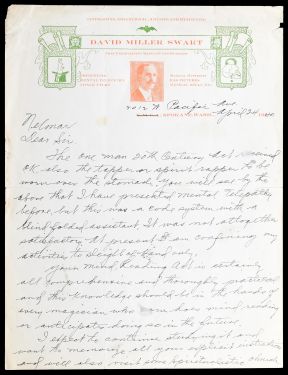 DAVID MILLER SWART
2012 W Pacific Ave
SPOKANE, WASH. April 24
Nelmar
Dear Sir
The one man 20th Century Act received
OK also the tapper or spirit rapper to be
worn over the stomach. You will say by the
above that I have presented Mental Telepathy
before but this was a code system with a
blindfolded assistant. It was not altogether
satisfactory. At present I am confining my
activities to Sleight of Hand only.
Your Mind Reading Act is certainly
all comprehensive and thoroughly practical
and this knowledge should be in the hands of
every magician who now does mind reading
or anticipates doing so in the future.
I expect to continue study of it and
want to memorize all your expert instruction
and will also visit some spiritualistic church